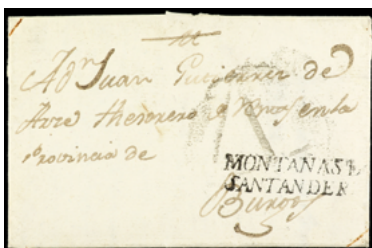 A Dn Juan Gutierrez de
thesorero en la
Provincia de
MONTAÑAS D
SANTANDER
Burgos